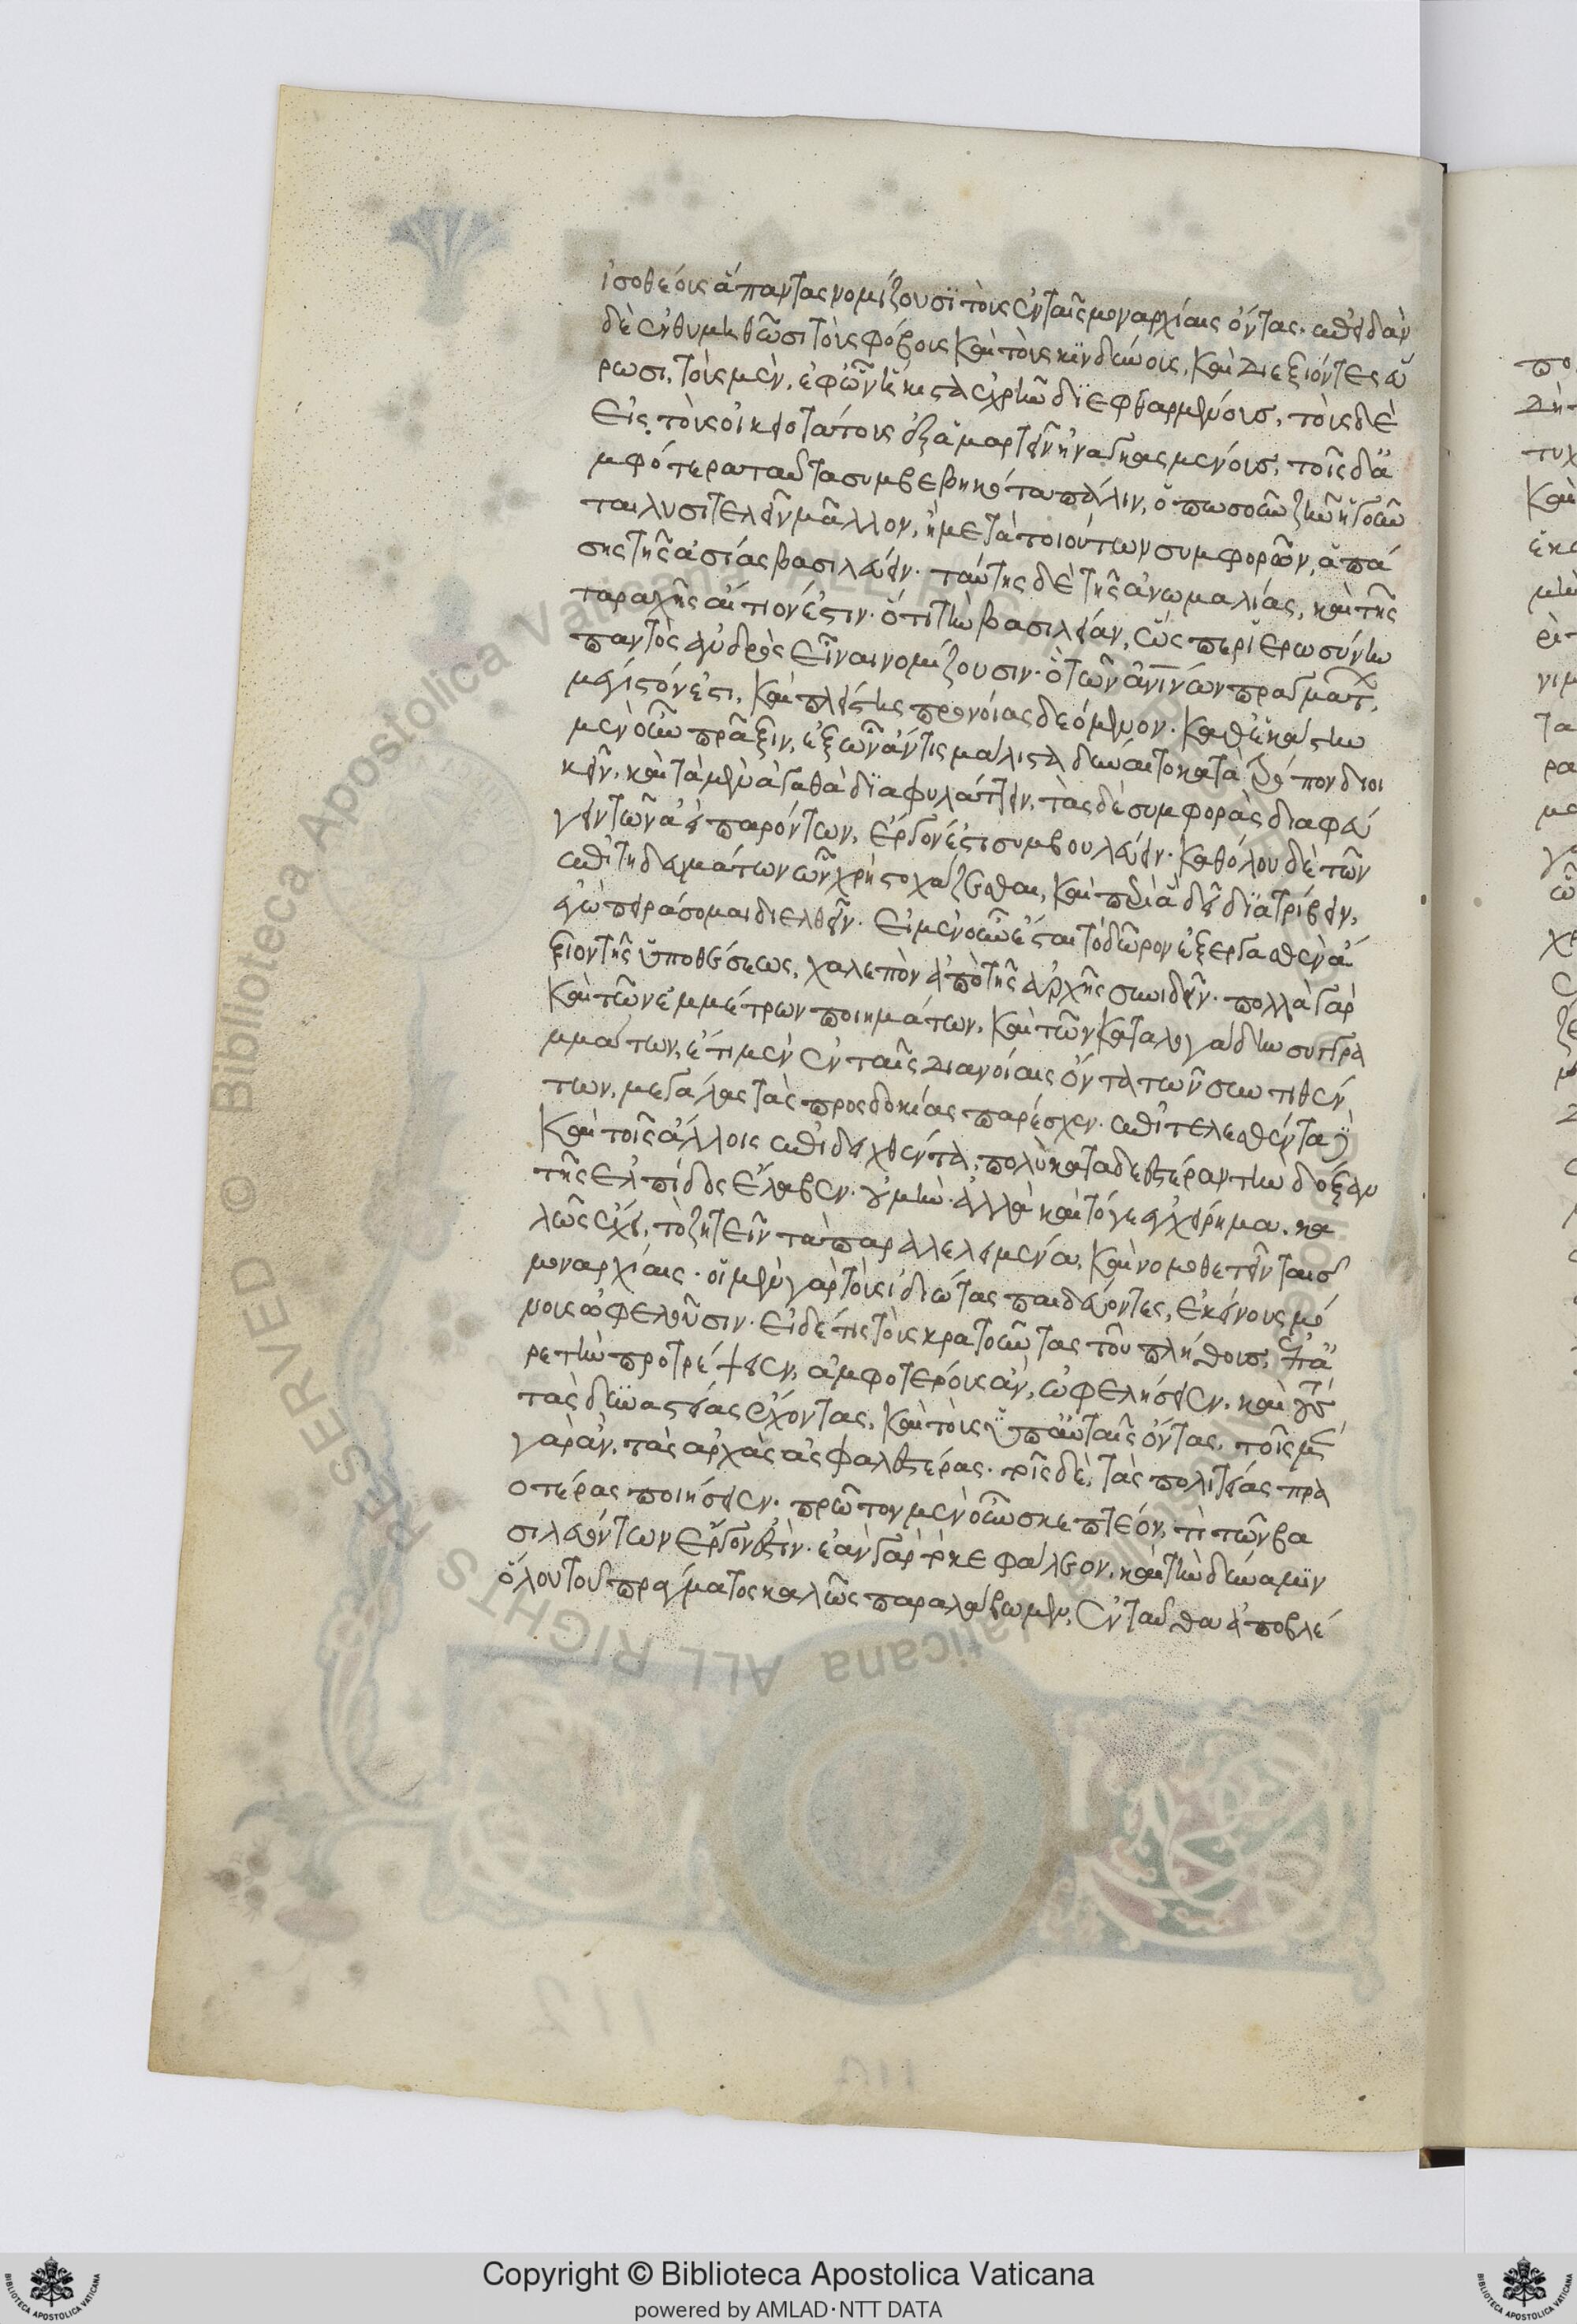 ἰσοθέοις ἅπαντας νομίζουσϊ τοὺς ἐν ταῖς μοναρχίαις ὄντας· ἐπειδὰν
δὲ ἐνθυμηθῶσι τοὺς φόβους καὶ τοὺς κϊνδύνους, καὶ διεξιόντες εὕ
ρωσι, τοὺς μὲν, ἐφ ὧν ἥκιστα ἐχρῆν δϊεφθαρμένους, τοὺς δὲ
εἰς τοὺς οἰκειοτάτους ἐξαμαρτεῖν ἠναγκασμένους, τοῖς δἀ
μφότερα ταῦτα συμβεβηκότα πάλιν, ὁπωσοῦν ζῆν ἡγοῦν
ται λυσιτελεῖν μᾶλλον, ἢ μετὰ τοιούτων συμφορῶν, ἁπά
σης τῆς ἀσίας βασιλεύειν· ταύτης δὲ τῆς ἀνωμαλίας, καὶ τῆς
ταραχῆς αἴτιον ἐστιν· ὅτι τὴν βασιλείαν, ὥσπερ ἱερωσύνην
παντὸς ἀνδρὸς εἶναι νομίζουσιν· ὃ τῶν ἀνίνων πραγμάτ,
μέγιστόν ἐστι, καὶ πλείστης προνοίας δεόμενον· καθ ἑκάστην
μὲν οὖν πρᾶξιν, ἐξ ὧν ἄν τις μάλιστα δύναιτο κατὰ τρόπον διοι
κεῖν, καὶ τὰ μὲν ἀγαθὰ δϊαφυλάττειν, τὰς δὲ συμφορὰς διαφεύ
γειν τῶν ἀεὶ παρόντων, ἔργόν ἐστι συμβουλεύειν· καθόλου δὲ τῶν
ἐπιτηδευμάτων ὧν χρὴ στοχάζεσθαι, καὶ περὶ ἃ δεῖ δϊατρίβειν,
ἐγὼ πειράσομαι διελθεῖν· εἰ μὲν οὖν ἔσται τὸ δῶρον ἐξεργασθὲν ἄ
ξιον τῆς ὑποθέσεως, χαλεπὸν ἀπὸ τῆς ἀρχῆς συνιδεῖν· πολλὰ γὰρ
καὶ τῶν ἐμμέτρων ποιημάτων, καὶ τῶν καταλογάδην συγγρα
μμάτων, ἔτι μὲν ἐν ταῖς διανοίαις ὄντα τῶν συντιθέν
των, μεγάλας τὰς προσδοκίας παρέσχεν· ἐπιτελεσθέντα δὲ
καὶ τοῖς ἄλλοις ἐπιδειχθέντα, πολὺ καταδεεστέραν τὴν δόξαν
τῆς ἐλπίδος ἔλαβεν· οὐ μὴν ἀλλὰ καὶ τό γε ἐγχείρημα, κα
λῶς ἔχει, τὸ ζητεῖν τὰ παραλελειμένα, καὶ νομοθετεῖν ταῖς
μοναρχίαις· οἱ μὲν γὰρ τοὺς ἰδιώτας παιδεύοντες, ἐκείνους μό
νους ὠφελοῦσιν· εἰ δέ τις τοὺς κρατοῦντας τοῦ πλήθους, ἐπ ἀ
ρετὴν προτρέψειεν, ἀμφοτέρους ἂν, ὠφελήσειεν, καὶ τοὺς
τὰς δϋναστείας ἔχοντας, καὶ τοὺς ὑπ αὐταῖς ὄντας, τοῖς μὲν
γὰρ ἂν, τὰς ἀρχὰς ἀσφαλεστέρας· τοῖς δὲ, τὰς πολιτείας πρα
οτέρας ποιήσειεν· πρῶτον μὲν οὖν σκεπτέον, τί τῶν βα
σιλευόντων ἔργον ἐστίν· ἐὰν γὰρ τὸ κεφάλαιον, καὶ τὴν δύναμϊν
ὅλου τοῦ πράγματος καλῶς παραλάβωμεν, ἐνταῦθα ἀποβλέ
Copyright © Biblioteca Apostolica Vaticana
powered by AMLAD·NTT DATA